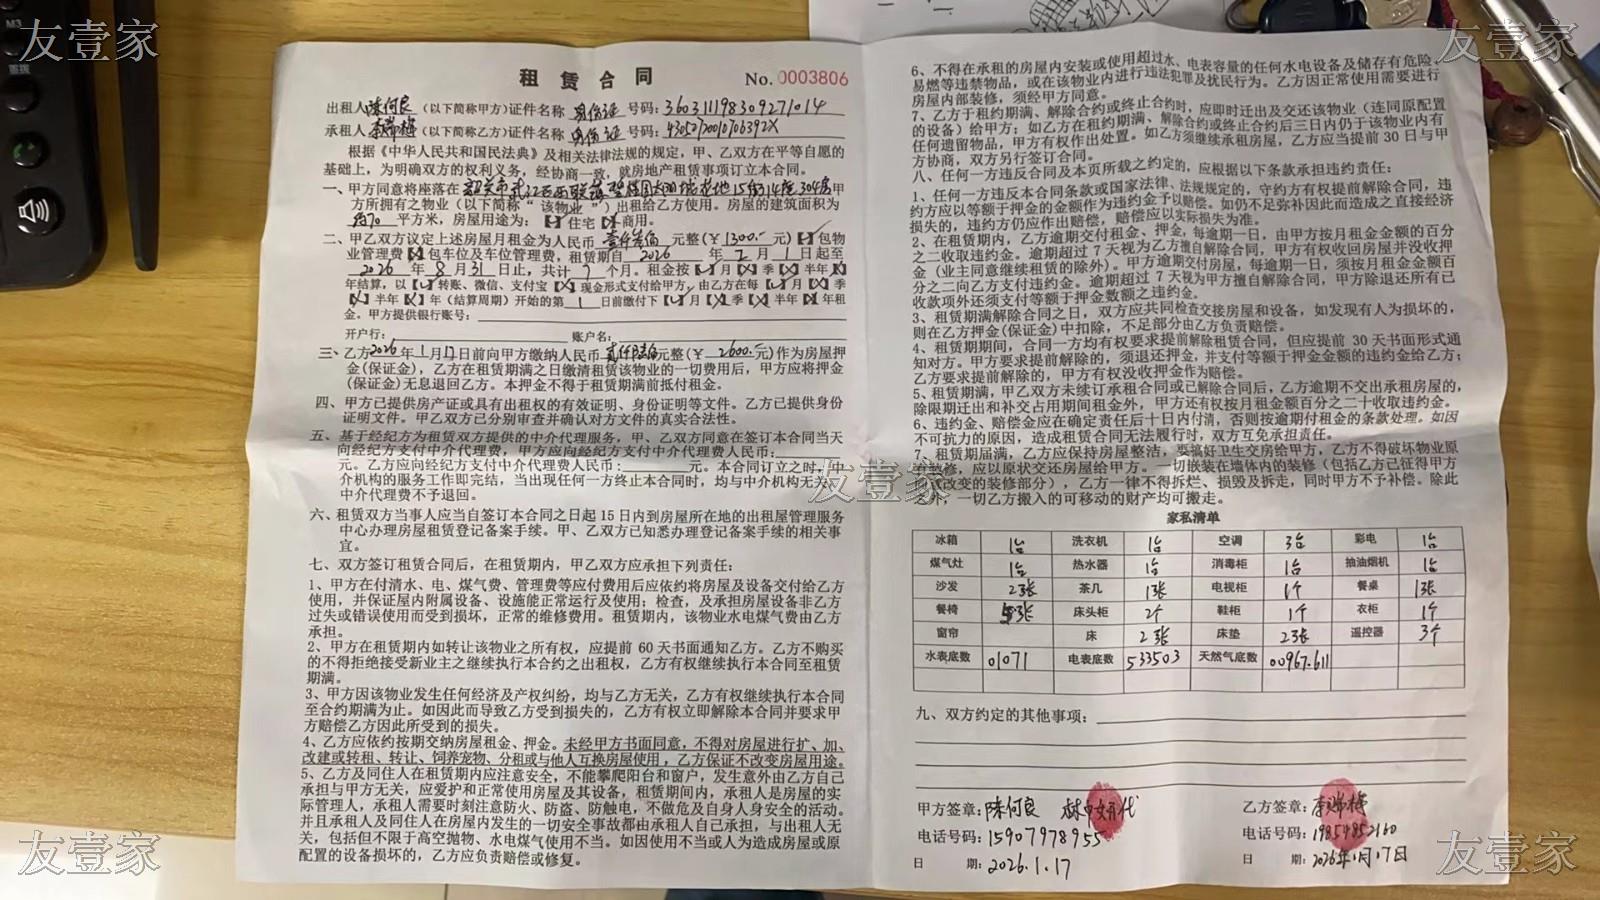 友壹家
友壹家
M3
重拨
租 赁 合 同 No. 0003806
出租人 陈何良 （以下简称甲方）证件名称 身份证 号码：360311198309271014
承租人 李端梅 （以下简称乙方）证件名称 身份证 号码：43052720010706392X
根据《中华人民共和国民法典》及相关法律法规的规定，甲、乙双方在平等自愿的
基础上，为明确双方的权利义务，经协商一致，就房地产租赁事项订立本合同。
一、甲方同意将座落在 韶关市武江区西联镇碧桂园太阳城 15 304房 甲
方所拥有之物业（以下简称“该物业”）出租给乙方使用。房屋的建筑面积为
70 平方米，房屋用途为：【 】住宅【 】商用。
二、甲乙双方议定上述房屋月租金为人民币 壹仟叁佰 元整(￥ 1300.- 元)【 】包物
业管理费【 】包车位及车位管理费，租赁期自 2026 年 2 月 1 日起至
2026 年 8 月 31 日止，共计 7 个月。租金按【 】月【 】季【 】半年【 】
年结算，以【 】转账、微信、支付宝【 】现金形式支付给甲方，由乙方在每【 】月【 】季
【 】半年【 】年（结算周期）开始的第 1 日前缴付下【 】月【 】季【 】半年【 】年租
金。甲方提供银行账号：
开户行： 账户名：
三、乙方 2026 年 1 月 17 日前向甲方缴纳人民币 贰仟陆佰 元整(￥ 2600.- 元)作为房屋押
金(保证金)，乙方在租赁期满之日缴清租赁该物业的一切费用后，甲方应将押金
(保证金)无息退回乙方。本押金不得于租赁期满前抵付租金。
四、甲方已提供房产证或具有出租权的有效证明、身份证明等文件。乙方已提供身份
证明文件。甲乙双方已分别审查并确认对方文件的真实合法性。
五、基于经纪方为租赁双方提供的中介代理服务，甲、乙双方同意在签订本合同当天
向经纪方支付中介代理费，甲方应向经纪方支付中介代理费人民币：
元。乙方应向经纪方支付中介代理费人民币： 元。本合同订立之时，中
介机构的服务工作即完结，当出现任何一方终止本合同时，均与中介机构无关，
中介代理费不予退回。
六、租赁双方当事人应当自签订本合同之日起 15 日内到房屋所在地的出租屋管理服务
中心办理房屋租赁登记备案手续。甲、乙双方已知悉办理登记备案手续的相关事
宜。
七、双方签订租赁合同后，在租赁期内，甲乙双方应承担下列责任：
1、甲方在付清水、电、煤气费、管理费等应付费用后应依约将房屋及设备交付给乙方
使用，并保证屋内附属设备、设施能正常运行及使用；检查，及承担房屋设备非乙方
过失或错误使用而受到损坏，正常的维修费用。租赁期内，该物业水电煤气费由乙方
承担。
2、甲方在租赁期内如转让该物业之所有权，应提前 60 天书面通知乙方。乙方不购买
的不得拒绝接受新业主之继续执行本合约之出租权，乙方有权继续执行本合同至租赁
期满。
3、甲方因该物业发生任何经济及产权纠纷，均与乙方无关，乙方有权继续执行本合同
至合约期满为止。如因此而导致乙方受到损失的，乙方有权立即解除本合同并要求甲
方赔偿乙方因此所受到的损失。
4、乙方应依约按期交纳房屋租金、押金。未经甲方书面同意，不得对房屋进行扩、加、
改建或转租、转让、饲养宠物、分租或与他人互换房屋使用，乙方保证不改变房屋用途。
5、乙方及同住人在租赁期内应注意安全，不能攀爬阳台和窗户，发生意外由乙方自己
承担与甲方无关，应爱护和正常使用房屋及其设备，租赁期间内，承租人是房屋的实
际管理人，承租人需要时刻注意防火、防盗、防触电，不做危及自身人身安全的活动。
并且承租人及同住人在房屋内发生的一切安全事故都由承租人自己承担，与出租人无
关，包括但不限于高空抛物、水电煤气使用不当。如因使用不当或人为造成房屋或原
配置的设备损坏的，乙方应负责赔偿或修复。
6、不得在承租的房屋内安装或使用超过水、电表容量的任何水电设备及储存有危险、
易燃等违禁物品，或在该物业内进行违法犯罪及扰民行为。乙方因正常使用需要进行
房屋内部装修，须经甲方同意。
7、乙方于租约期满、解除合约或终止合约时，应即时迁出及交还该物业（连同原配置
的设备）给甲方；如乙方在租约期满、解除合约或终止合约后三日内仍于该物业内有
任何遗留物品，甲方有权作出处置。如乙方须继续承租房屋，乙方应当提前 30 日与甲
方协商，双方另行签订合同。
八、任何一方违反本合同及本页所载之约定的，应根据以下条款承担违约责任：
1、任何一方违反本合同条款或国家法律、法规规定的，守约方有权提前解除合同，违
约方应以等额于押金的金额作为违约金予以赔偿。如仍不足弥补因此而造成之直接经济
损失的，违约方仍应作出赔偿，赔偿应以实际损失为准。
2、在租赁期内，乙方逾期交付租金、押金，每逾期一日，由甲方按月租金金额的百分
之二收取违约金。逾期超过 7 天视为乙方擅自解除合同，甲方有权收回房屋并没收押
金（业主同意继续租赁的除外）。甲方逾期交付房屋，每逾期一日，须按月租金金额百
分之二向乙方支付违约金。逾期超过 7 天视为甲方擅自解除合同，甲方除退还所有已
收款项外还须支付等额于押金数额之违约金。
3、租赁期满解除合同之日，双方应共同检查交接房屋和设备，如发现有人为损坏的，
则在乙方押金(保证金)中扣除，不足部分由乙方负责赔偿。
4、租赁期期间，合同一方均有权要求提前解除租赁合同，但应提前 30 天书面形式通
知对方。甲方要求提前解除的，须退还押金，并支付等额于押金金额的违约金给乙方；
乙方要求提前解除的，甲方有权没收押金作为赔偿。
5、租赁期满，甲乙双方未续订承租合同或已解除合同后，乙方逾期不交出承租房屋的，
除限期迁出和补交占用期间租金外，甲方还有权按月租金额百分之二十收取违约金。
6、违约金、赔偿金应在确定责任后十日内付清，否则按逾期付租金的条款处理。如因
不可抗力的原因，造成租赁合同无法履行时，双方互免承担责任。
7、租赁期届满，乙方应保持房屋整洁，要搞好卫生交房给甲方，乙方不得破坏物业原
装修，应以原状交还房屋给甲方。一切嵌装在墙体内的装修（包括乙方已征得甲方
改变的装修部分），乙方一律不得拆烂、损毁及拆走，同时甲方不予补偿。除此
之外，一切乙方搬入的可移动的财产均可搬走。
家私清单
冰箱 1台 洗衣机 1台 空调 3台 彩电 1台
煤气灶 1台 热水器 1台 消毒柜 1台 抽油烟机 1台
沙发 2张 茶几 1张 电视柜 1个 餐桌 1张
餐椅 3张 床头柜 2个 鞋柜 1个 衣柜 1个
窗帘 床 2张 床垫 2张 遥控器 3个
水表底数 01071 电表底数 533503 天然气底数 00967.611
九、双方约定的其他事项：
甲方签章：陈何良 代
电话号码：15907978955
日 期：2026.1.17
乙方签章：李端梅
电话号码：19854852160
日 期：2026年1月17日
友壹家
友壹家
友壹家